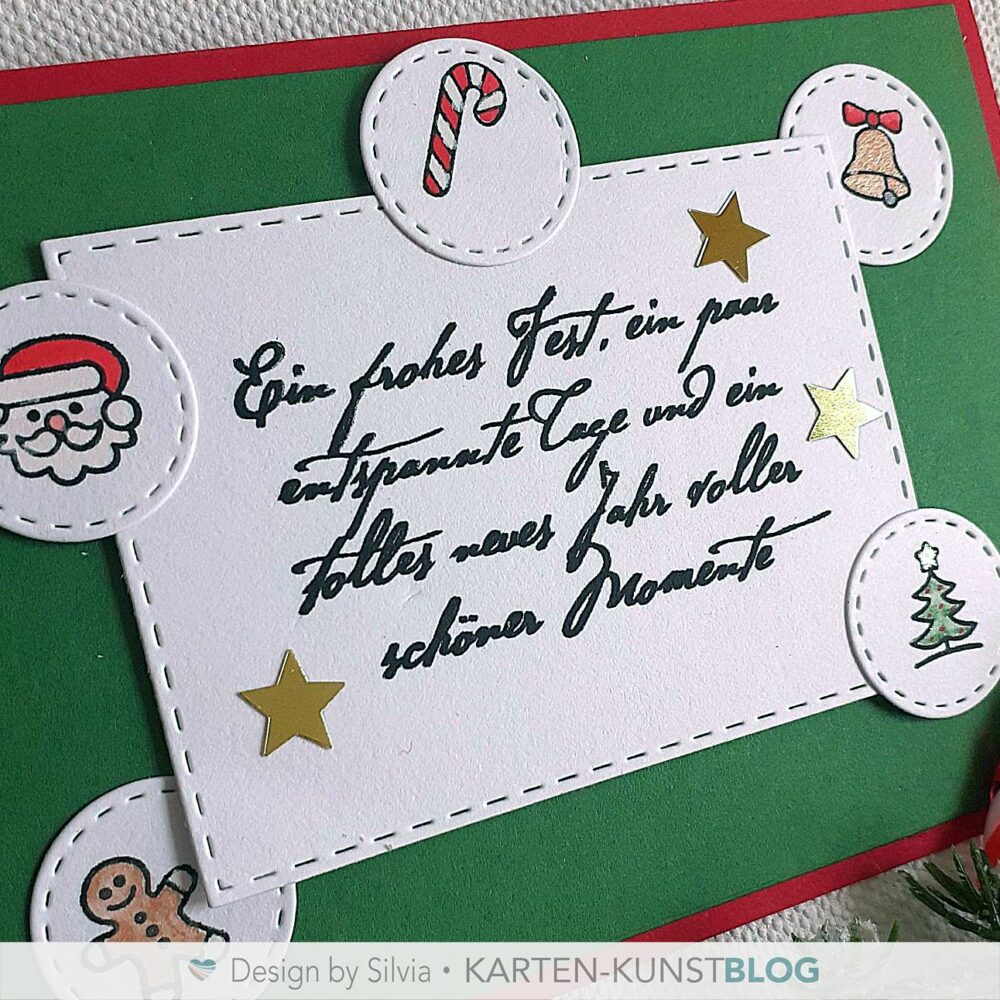 Ein frohes Fest, ein paar
entspannte Tage und ein
tolles neues Jahr voller
schöner Momente
Design by Silvia • KARTEN-KUNSTBLOG